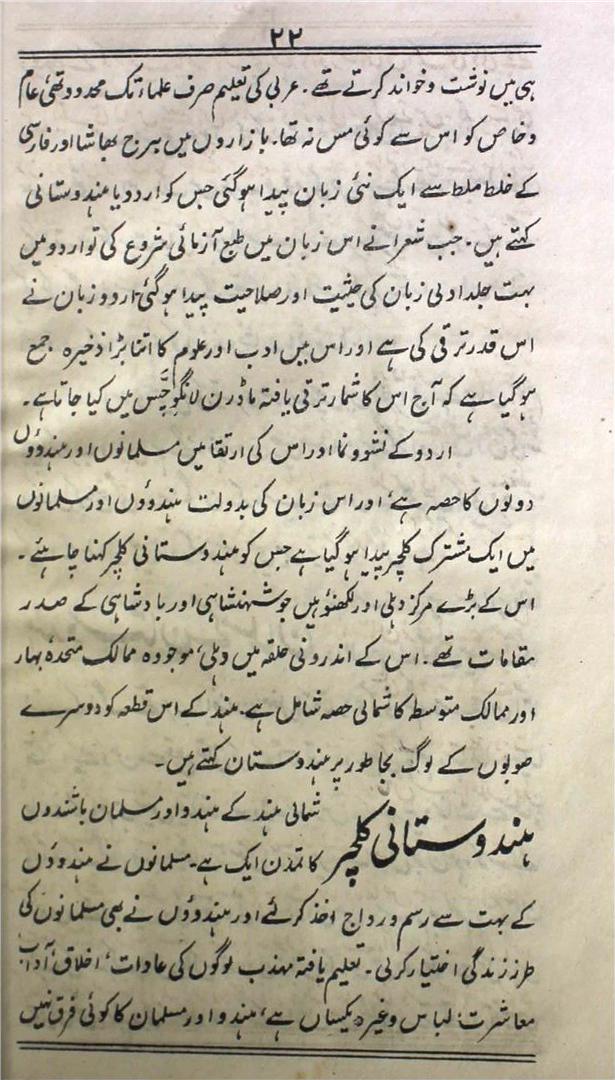 ۲۲
ہی میں نوشت و خواند کرتے تھے۔ عربی کی تعلیم صرف علماء تک محدود تھی عام
و خاص کو اس سے کوئی مس نہ تھا۔ بازاروں میں برج بھاشا اور فارسی
کے خلط ملط سے ایک نئی زبان پیدا ہو گئی جس کو اردو یا ہندوستانی
کہتے ہیں۔ جب شعرا نے اس زبان میں طبع آزمائی شروع کی تو اردو میں
بہت جلد ادبی زبان کی حیثیت اور صلاحیت پیدا ہو گئی۔ اردو زبان نے
اس قدر ترقی کی ہے اور اس میں ادب اور علوم کا اتنا بڑا ذخیرہ جمع
ہو گیا ہے کہ آج اس کا شمار ترقی یافتہ ماڈرن لانگوٗاجَس میں کیا جاتا ہے۔
اردو کے نشوونما اور اس کی ارتقا میں مسلمانوں اور ہندوؤں
دونوں کا حصہ ہے، اور اس زبان کی بدولت ہندوؤں اور مسلمانوں
میں ایک مشترک کلچر پیدا ہو گیا ہے جس کو ہندوستانی کلچر کہنا چاہئے۔
اس کے بڑے مرکز دہلی اور لکھنؤ ہیں جو شہنشاہی اور بادشاہی کے صدر
مقامات تھے۔ اس کے اندرونی حلقہ میں دہلی، موجودہ ممالک متحدہ بہار
اور ممالک متوسطہ کا شمالی حصہ شامل ہے۔ ہند کے اس قطعہ کو دوسرے
صوبوں کے لوگ بجا طور پر ہندوستان کہتے ہیں۔
ہندوستانی کلچر شمالی ہند کے ہندو اور مسلمان باشندوں
کا تمدن ایک ہے۔ مسلمانوں نے ہندوؤں
کے بہت سے رسم و رواج اخذ کر لئے اور ہندوؤں نے بھی مسلمانوں کی
طرز زندگی اختیار کر لی۔ تعلیم یافتہ مہذب لوگوں کی عادات، اخلاق، آداب
معاشرت، لباس وغیرہ یکساں ہے، ہندو اور مسلمان کا کوئی فرق نہیں